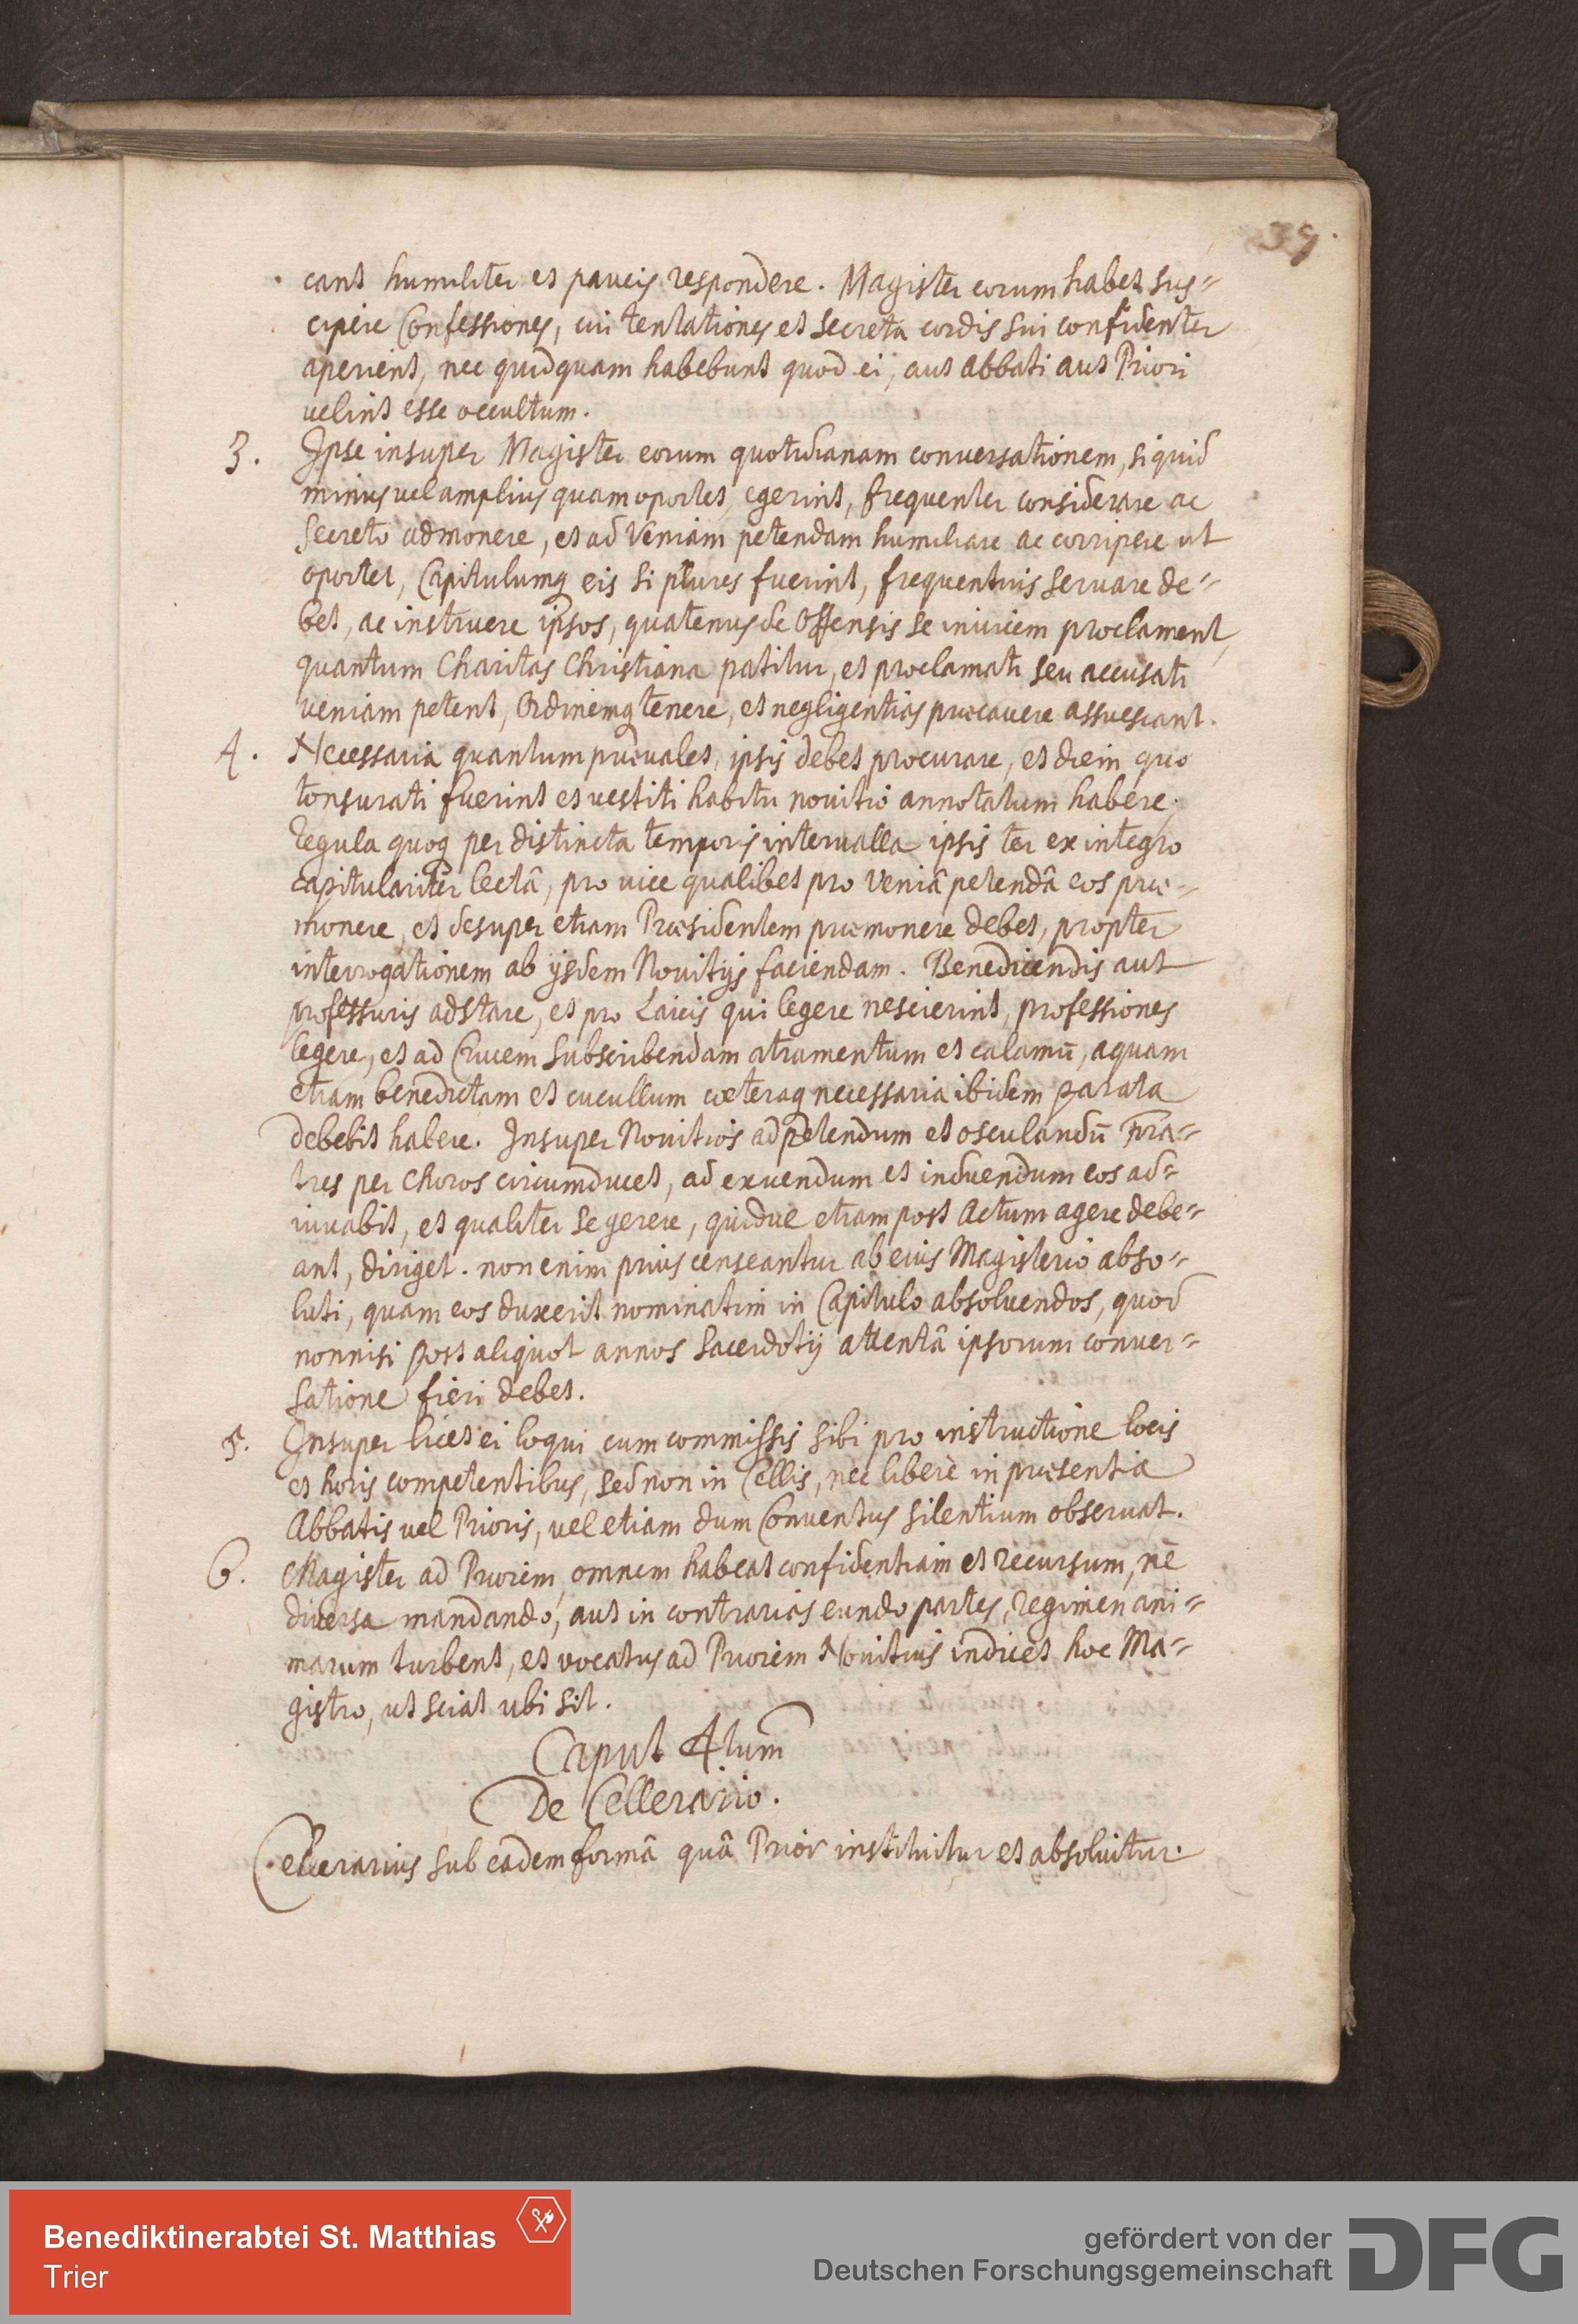 39.
cant humiliter et paucis respondere. Magister eorum habet sus=
cipere Confessiones, cui tentationes et secreta cordis sui confidenter
aperient, nec quidquam habebunt quod ei, aut Abbati aut Priori
velint esse occultum.
3. Ipse insuper Magister eorum quotidianam conversationem, si quid
minus vel amplius quam oportet, egerint, frequenter considerare ac
secreto admonere, et ad Veniam petendam humiliare ac corripere ut
oportet, Capitulumq eis si plures fuerint, frequentius servare de=
bet, ac instruere ipsos, quatenus de Offensis se invicem proclament,
quantum Charitas Christiana patitur, et proclamati seu accusati
veniam petent, Ordinemq tenere, et negligentias præcavere assuescant.
4. Necessaria quantum prævalet, ipsis debet procurare, et diem quo
tonsurati fuerint et vestiti habitu novitio annotatum habere.
Regula quoq per distincta temporis intervalla ipsis ter ex integro
capitulariter lectâ, pro vice qualibet pro Veniâ petendâ eos præ=
monere, et desuper etiam Præsidentem præmonere debet, propter
interrogationem ab ijsdem Novitijs faciendam. Benedicendis aut
professuris adstare, et pro Laicis qui legere nescierint, professiones
legere, et ad Crucem subscribendam atramentum et calamū, aquam
etiam benedictam et cucullum cæteraq necessaria ibidem parata
debebit habere. Insuper Novitios ad petendum et osculandū Fra=
tres per Choros circumducet, ad exuendum et induendum eos ad=
iuvabit, et qualiter se gerere, quidve etiam post Actum agere debe=
ant, diriget. non enim prius censeantur ab eius Magisterio abso=
luti, quam eos duxerit nominatim in Capitulo absolvendos, quod
nonnisi post aliquot annos Sacerdotij attentâ ipsorum conver=
satione fieri debet.
5. Insuper licet ei loqui cum commissis sibi pro instructione locis
et horis competentibus, sed non in Cellis, nec liberè in præsentia
Abbatis vel Prioris, vel etiam dum Conventus silentium observat.
6. Magister ad Priorem omnem habeat confidentiam et recursum, nè
diversa mandando, aut in contrarias eundo partes, Regimen ani=
marum turbent, et vocatus ad Priorem Novitius indicet hoc Ma=
gistro, ut sciat ubi sit.
Caput 4tum
De Cellerario.
Cellerarius sub eadem formâ quâ Prior instituitur et absolvitur.
Benediktinerabtei St. Matthias
Trier
gefördert von der
Deutschen Forschungsgemeinschaft
DFG